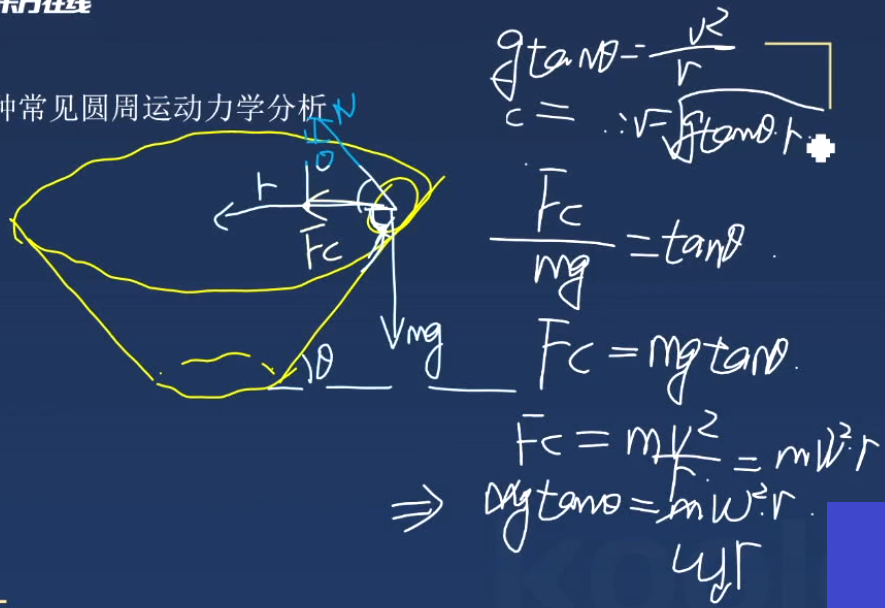 东方在线
种常见圆周运动力学分析
N
θ
r
Fc
mg
θ
gtanθ = v²/r
c =
∴ v = √gtanθ·r
Fc/mg = tanθ
Fc = mgtanθ
Fc = mv²/r = mw²r
⇒ mgtanθ = mw²r
koola